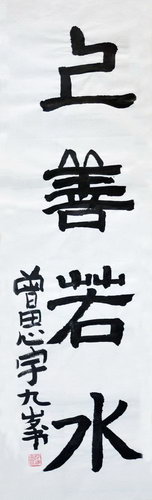 上善若水
曾思宇九峯